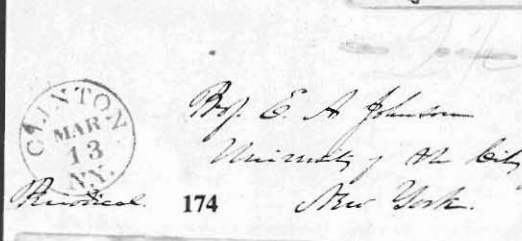 CLINTON
MAR
13
N.Y.
Prof. E. A Johnson
University of the City
New York.
174